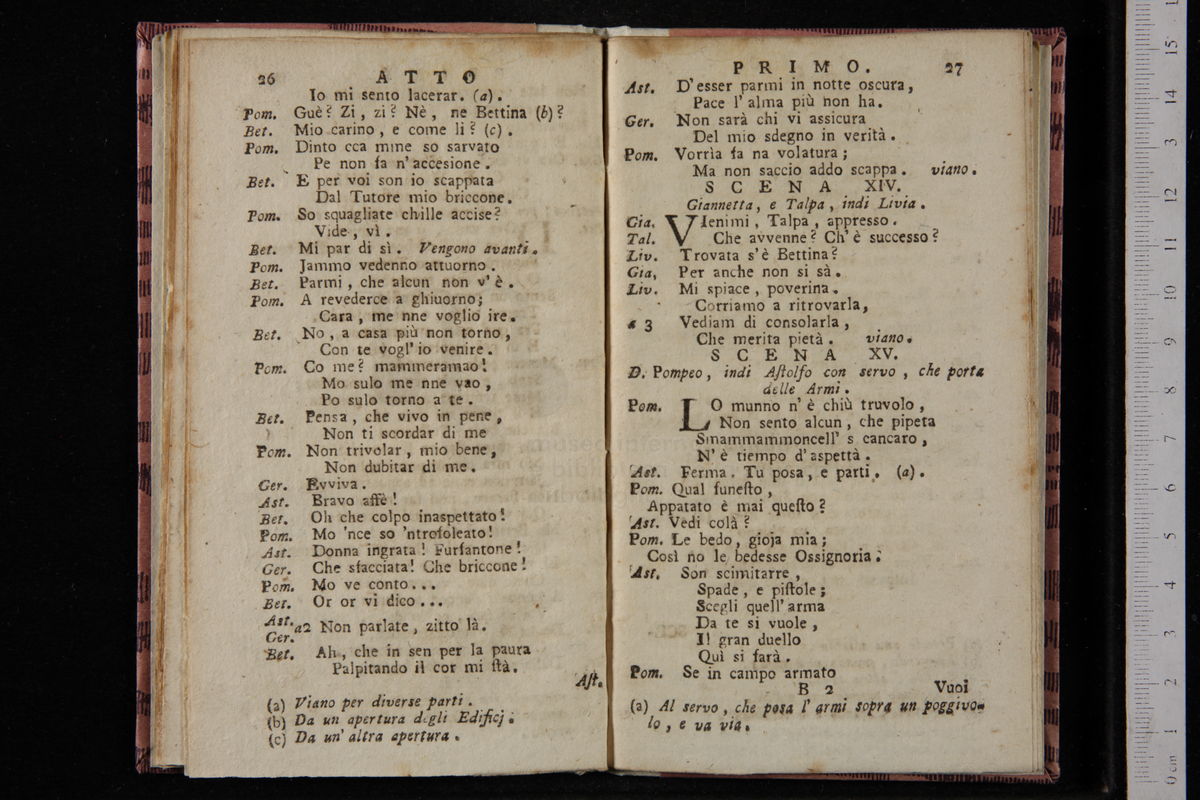 26 ATTO
Io mi sento lacerar. (a).
Pom. Guè? Zi, zi? Nè, ne Bettina (b)?
Bet. Mio carino, e come li? (c).
Pom. Dinto cca mme so sarvato
Pe non fa n'accesione.
Bet. E per voi son io scappata
Dal Tutore mio briccone.
Pom. So squagliate chille accise?
Vide, vì.
Bet. Mi par di sì. Vengono avanti.
Pom. Jammo vedenno attuorno.
Bet. Parmi, che alcun non v'è.
Pom. A revederce a ghiuorno;
Cara, me nne voglio ire.
Bet. No, a casa più non torno,
Con te vogl'io venire.
Pom. Co me? mammeramao!
Mo sulo me nne vao,
Po sulo torno a te.
Bet. Pensa, che vivo in pene,
Non ti scordar di me
Pom. Non trivolar, mio bene,
Non dubitar di me.
Ger. Evviva.
Ast. Bravo affè!
Bet. Oh che colpo inaspettato!
Pom. Mo 'nce so 'ntrofoleato!
Ast. Donna ingrata! Furfantone!
Ger. Che sfacciata! Che briccone!
Pom. Mo ve conto...
Bet. Or or vi dico...
Ast.
Ger. a2 Non parlate, zitto là.
Bet. Ah, che in sen per la paura
Palpitando il cor mi ſtà.
Aſt.
(a) Viano per diverse parti.
(b) Da un apertura degli Edificj.
(c) Da un' altra apertura.
PRIMO. 27
Ast. D'esser parmi in notte oscura,
Pace l'alma più non ha.
Ger. Non sarà chi vi assicura
Del mio sdegno in verità.
Pom. Vorrìa fa na volatura;
Ma non saccio addo scappa. viano.
SCENA XIV.
Giannetta, e Talpa, indi Livia.
Gia. VIenimi, Talpa, appresso.
Tal. Che avvenne? Ch'è successo?
Liv. Trovata s'è Bettina?
Gia. Per anche non si sà.
Liv. Mi spiace, poverina.
Corriamo a ritrovarla,
a 3 Vediam di consolarla,
Che merita pietà. viano.
SCENA XV.
D. Pompeo, indi Aſtolfo con servo, che porta
delle Armi.
Pom. LO munno n'è chiù truvolo,
Non sento alcun, che pipeta
Smammammoncell' s cancaro,
N'è tiempo d'aspettà.
Ast. Ferma. Tu posa, e parti. (a).
Pom. Qual funeſto,
Appatato è mai queſto?
Ast. Vedi colà?
Pom. Le bedo, gioja mia;
Così no le bedesse Ossignoria.
Ast. Son scimitarre,
Spade, e piſtole;
Scegli quell'arma
Da te si vuole,
Il gran duello
Quì si farà.
Pom. Se in campo armato
B 2 Vuoi
(a) Al servo, che posa l'armi sopra un poggivo-
lo, e va via.
0 cm 1 2 3 4 5 6 7 8 9 10 11 12 13 14 15